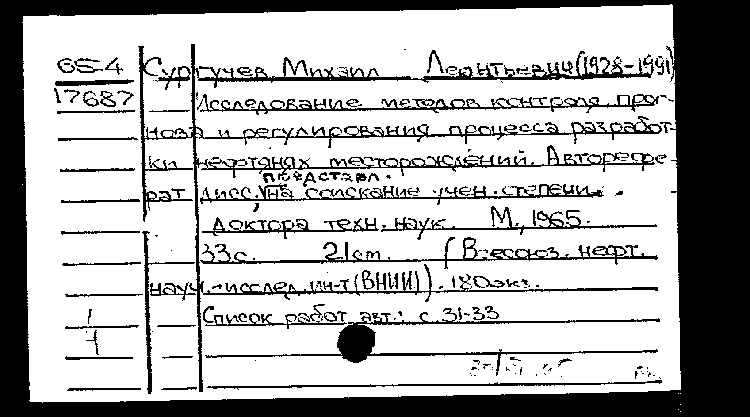 65-4 Сургучев, Михаил Леонтьевич (1928-1991)
17687 Исследование методов контроля, прог-
ноза и регулирования процесса разработ-
ки нефтяных месторождений. Авторефе-
представл.
рат дисс. на соискание учен. степени
доктора техн. наук. М., 1965.
33с. 21см. (Всесоюз. нефт.
науч.-исслед. ин-т (ВНИИ)). 180экз.
Список работ авт.: с. 31-33